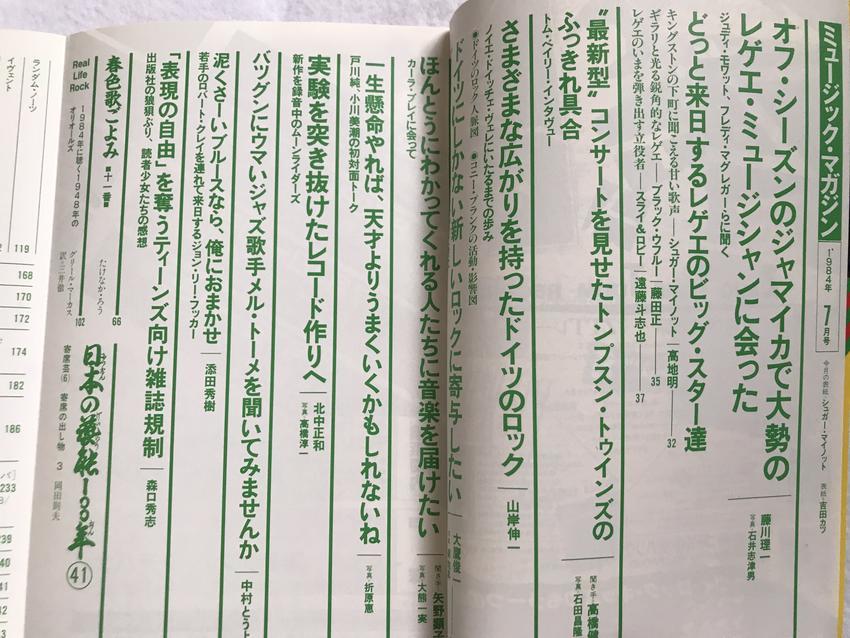 ミュージック・マガジン
1984年
7月号
今月の表紙=シュガー・マイノット
表紙=吉田カツ
オフ・シーズンのジャマイカで大勢の
レゲエ・ミュージシャンに会った
ジュディ・モワット、フレディ・マグレガーらに聞く
藤川理一
写真=石井志津男
どっと来日するレゲエのビッグ・スター達
キングストンの下町に聞こえる甘い歌声――シュガー・マイノット
高地明
32
ギラリと光る鋭角的なレゲエ――ブラック・ウフルー
藤田正
35
レゲエのいまを弾き出す立役者――スライ&ロビー
遠藤斗志也
37
“最新型”コンサートを見せたトンプスン・トゥインズの
ふつきれ具合
トム・ベイリー・インタヴュー
聞き手=高橋健
写真=石田昌隆
さまざまな広がりを持ったドイツのロック
ノイエ・ドイッチェ・ヴェレにいたるまでの歩み
山岸伸一
●ドイツのロック人脈図
●コニー・プランクの活動・影響図
ドイツにしかない新しいロックに寄与したい
大鷹俊一
ほんとうにわかってくれる人たちに音楽を届けたい
カーラ・ブレイに会って
聞き手=矢野顕子
写真=大熊一実
一生懸命やれば、天才よりうまくいくかもしれないね
戸川純、小川美潮の初対面トーク
写真=折原恵
実験を突き抜けたレコード作りへ
新作を録音中のムーンライダーズ
北中正和
写真=高橋淳一
バツグンにウマいジャズ歌手メル・トーメを聞いてみませんか
中村とうよ
泥くさーいブルースなら、俺におまかせ
若手のロバート・クレイを連れて来日するジョン・リー・フッカー
添田秀樹
「表現の自由」を奪うティーンズ向け雑誌規制
出版社の狼狽ぶり、読者少女たちの感想
森口秀志
春色歌ごよみ
■十一番■
たけなか・ろう
66
Real
Life
Rock
1984年に聴く1948年の
オリオールズ
グリール・マーカス
訳・三井徹
102
日本の藝能一〇〇年
㊶
寄席芸(6)
寄席の出し物 3
岡田則夫
ランダム・ノーツ
イヴェント
119
168
170
172
174
182
186
233
239